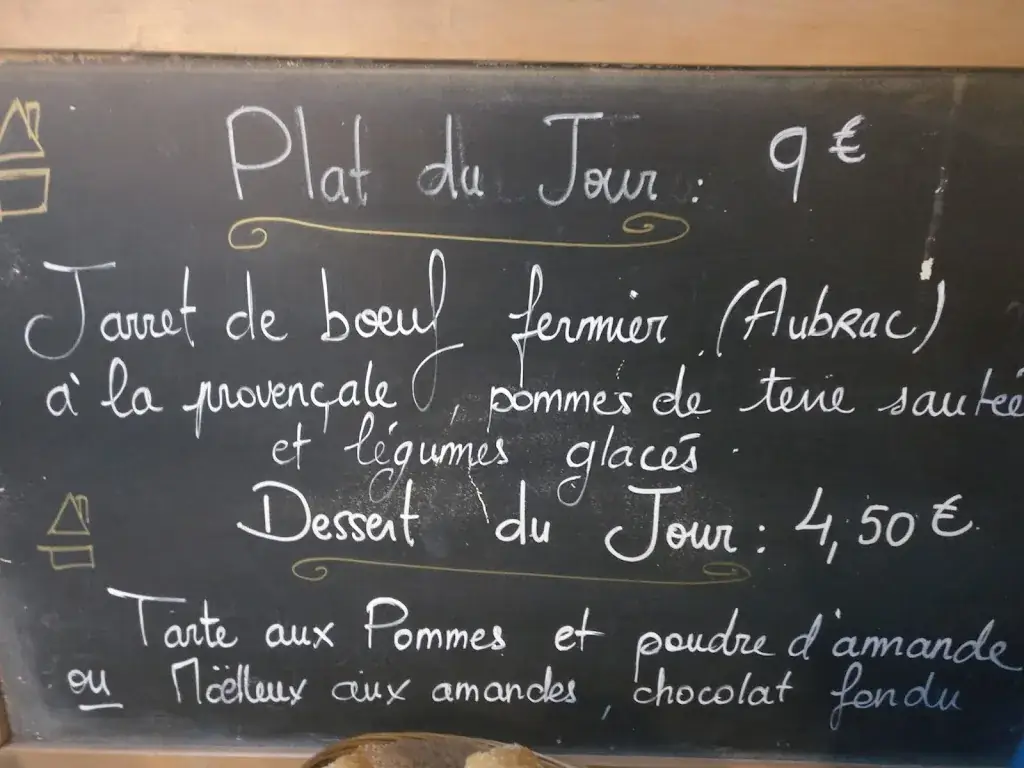 Plat du Jour : 9 €
Jarret de boeuf fermier (Aubrac)
à la provençale, pommes de terre sautée
et légumes glacés.
Dessert du Jour : 4,50 €
Tarte aux Pommes et poudre d'amande
ou Moëlleux aux amandes, chocolat fondu